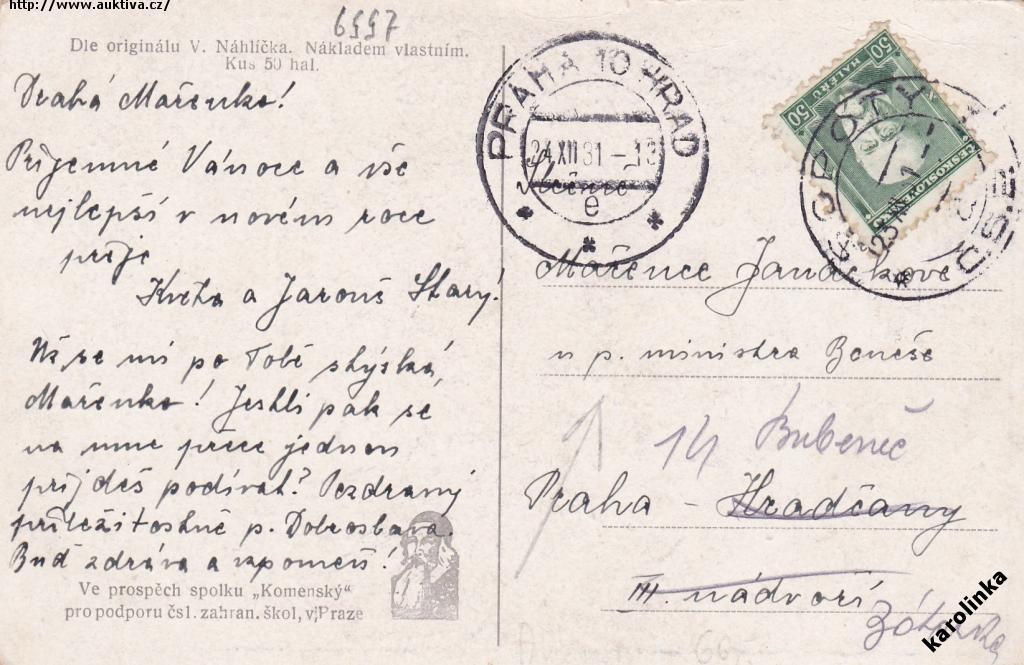 http://www.auktiva.cz/
6997
Dle originálu V. Náhlíčka. Nákladem vlastním.
Kus 50 hal.
Drahá Mařenko!
Příjemné Vánoce a vše
nejlepší v novém roce
přeje
Květa a Jarouš Starý!
se mi po Tobě stýská,
Mařenko! Jestli pak se
na mne přece jednou
přijdeš podívat? Pozdravuj
příležitostně p. Dobroslava.
Buď zdráva a vzpomeň!
Ve prospěch spolku „Komenský“
pro podporu čsl. zahran. škol, v Praze
PRAHA 10 HRAD
24 XII 31 - 13
e
50 HALÉŘŮ 50
ČESKOSLOVENSKO
Mařence Janáčkové
u p. ministra Beneše
14 Bubeneč
Praha - Hradčany
III. nádvoří
karolinka